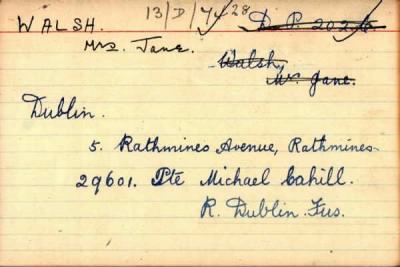 WALSH. 13/D/7428 D. P. 202
Mrs. Jane.
Walsh,
Mr. Jane.
Dublin.
5. Rathmines Avenue, Rathmines
29601. Pte Michael Cahill.
R. Dublin. Fus.